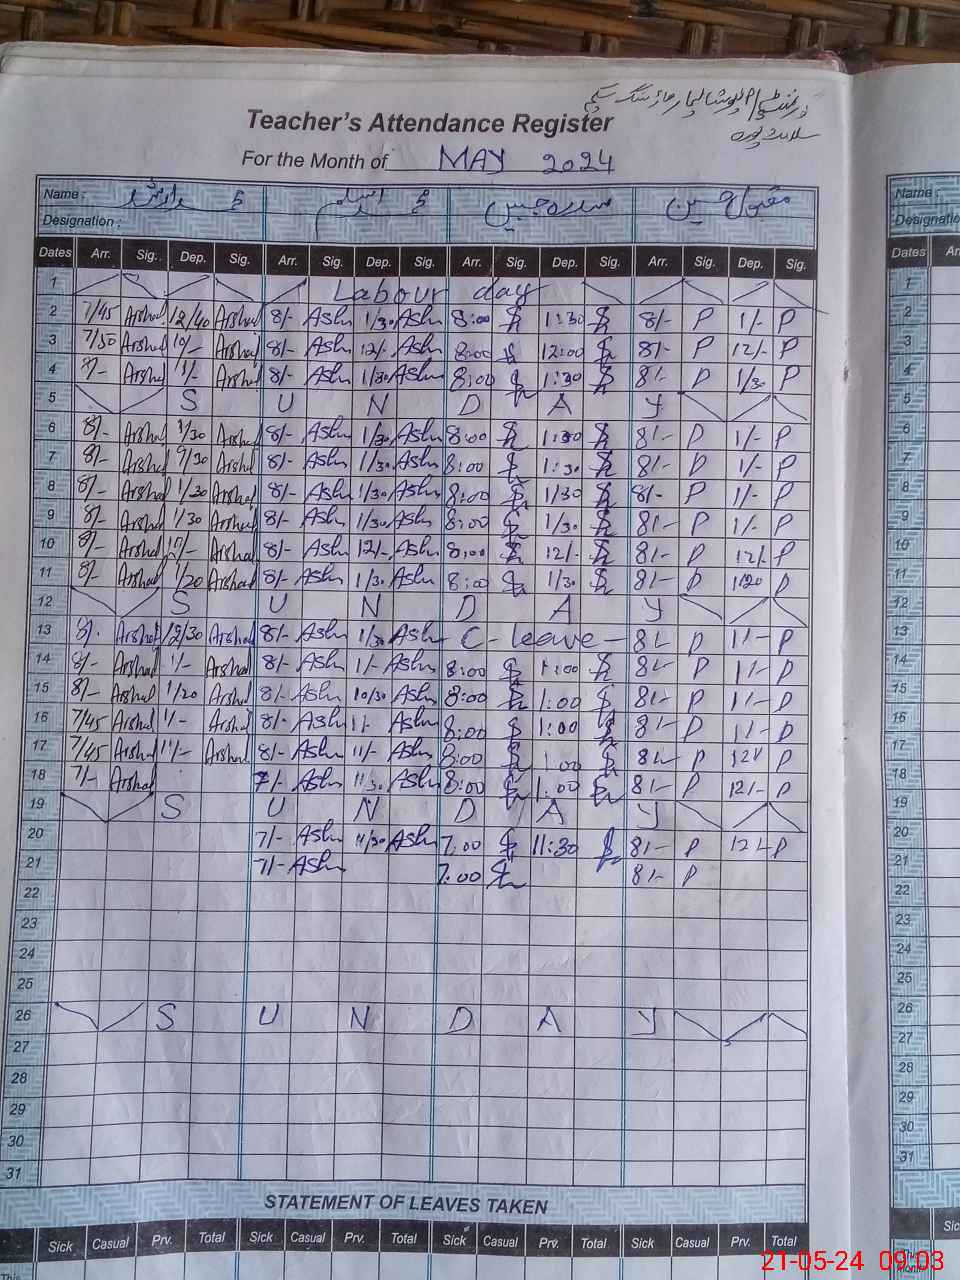 Teacher's Attendance Register
For the Month of MAY 2024
Name : محمد ارشد محمد اسلم حسین مقبول حسین
Designation :
Dates Arr. Sig. Dep. Sig. Arr. Sig. Dep. Sig. Arr. Sig. Dep. Sig. Arr. Sig. Dep. Sig.
1 Labour day
2 7/45 Arshad 12/40 Arshad 8/- Aslm 1/30 Aslm 8:00 1:30 8/- P 1/- P
3 7/50 Arshad Arshad 8/- Aslm 12/- Aslm 8:00 12:00 8/- P 12/- P
4 8/- Arshad 1/- Arshad 8/- Aslm 1/30 Aslm 8:00 1:30 8/- P 1/30 P
5 S U N D A Y
6 8/- Arshad 1/30 Arshad 8/- Aslm 1/30 Aslm 8:00 1:30 8/- P 1/- P
7 8/- Arshad Arshad 8/- Aslm 1/30 Aslm 8:00 1:30 8/- P 1/- P
8 8/- Arshad 1/30 Arshad 8/- Aslm 1/30 Aslm 8:00 1/30 8/- P 1/- P
9 8/- Arshad 1/30 Arshad 8/- Aslm 1/30 Aslm 8:00 1/30 8/- P 1/- P
10 8/- Arshad Arshad 8/- Aslm 12/- Aslm 8:00 12/- 8/- P 12/- P
11 8/- Arshad 1/20 Arshad 8/- Aslm 1/30 Aslm 8:00 1/30 8/- P 1/20 P
12 S U N D A Y
13 8/- Arshad 12/30 Arshad 8/- Aslm 1/30 Aslm C-leave 8/- P 1/- P
14 8/- Arshad 1/- Arshad 8/- Aslm 1/- Aslm 8:00 1:00 8/- P 1/- P
15 8/- Arshad 1/20 Arshad 8/- Aslm 10/30 Aslm 8:00 1:00 8/- P 1/- P
16 7/45 Arshad 1/- Arshad 8/- Aslm 1/- Aslm 8:00 1:00 8/- P 1/- P
17 7/45 Arshad 11/- Arshad 8/- Aslm 11/- Aslm 8:00 1:00 8/- P P
18 7/- Arshad 7/- Aslm 11/30 Aslm 8:00 1:00 8/- P 12/- P
19 S U N D A Y
20 7/- Aslm 11/30 Aslm 7:00 11:30 8/- P 12/- P
21 7/- Aslm 7:00 8/- P
22
23
24
25
26 S U N D A Y
27
28
29
30
31
STATEMENT OF LEAVES TAKEN
Sick Casual Prv. Total Sick Casual Prv. Total Sick Casual Prv. Total Sick Casual Prv. Total
This
Name
Designatio
Dates
1
2
3
4
5
6
7
8
9
10
11
12
13
14
15
16
17
18
19
20
21
22
23
24
25
26
27
28
29
30
31
21-05-24 09:03